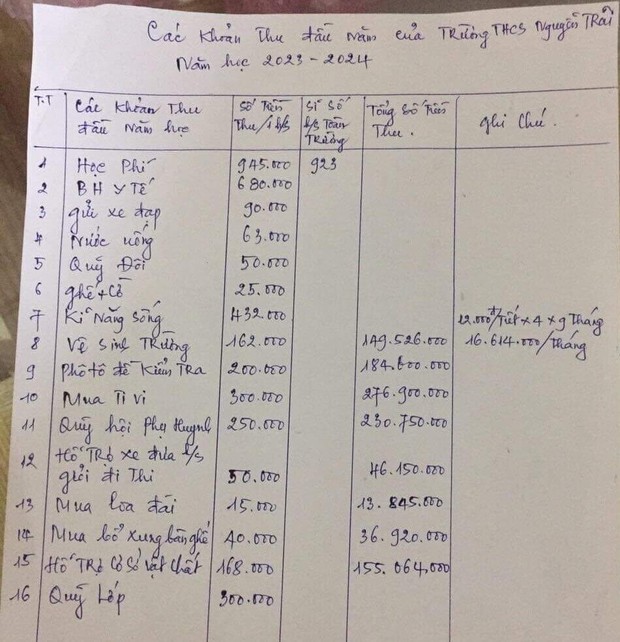 Các khoản thu đầu năm của Trường THCS Nguyễn Trãi
Năm học 2023 - 2024
T.T Các khoản thu đầu năm học Số tiền thu/1 h/s Sĩ số h/s toàn trường Tổng số tiền thu. Ghi chú.
1 Học Phí 945.000 923
2 BH y Tế 680.000
3 gửi xe đạp 90.000
4 Nước uống 63.000
5 Quỹ Đội 50.000
6 ghế + Cờ 25.000
7 Kĩ Năng Sống 432.000 12.000đ/Tiết x 4 x 9 Tháng
8 Vệ sinh Trường 162.000 149.526.000 16.614.000/Tháng
9 Phôtô đề Kiểm Tra 200.000 184.600.000
10 Mua Ti vi 300.000 276.900.000
11 Quỹ hội Phụ Huynh 250.000 230.750.000
12 Hỗ Trợ xe đưa h/s
giỏi đi Thi 50.000 46.150.000
13 Mua loa đài 15.000 13.845.000
14 Mua bổ xung bàn ghế 40.000 36.920.000
15 Hỗ Trợ Cơ Sở Vật Chất 168.000 155.064.000
16 Quỹ Lớp 300.000